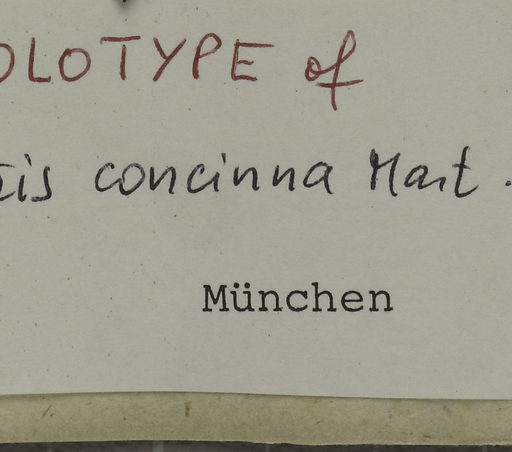 OLOTYPE of
is concinna Mart.
München